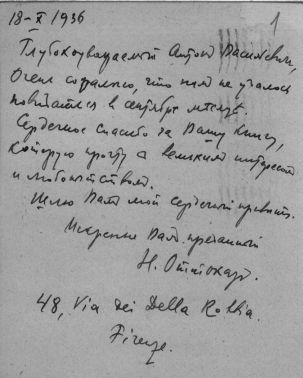 18-X 1936
1
Глубокоуважаемый Антон Васильевич,
Очень сожалею, что нам не удалось
повидаться в сентябре месяце.
Сердечное спасибо за Вашу книгу,
которую прочту с великим интересом
и любопытством.
Шлю Вам мой сердечный привет.
Искренно Вам преданный
Н. Оттокар.
48, Via dei Della Robbia.
Firenze.